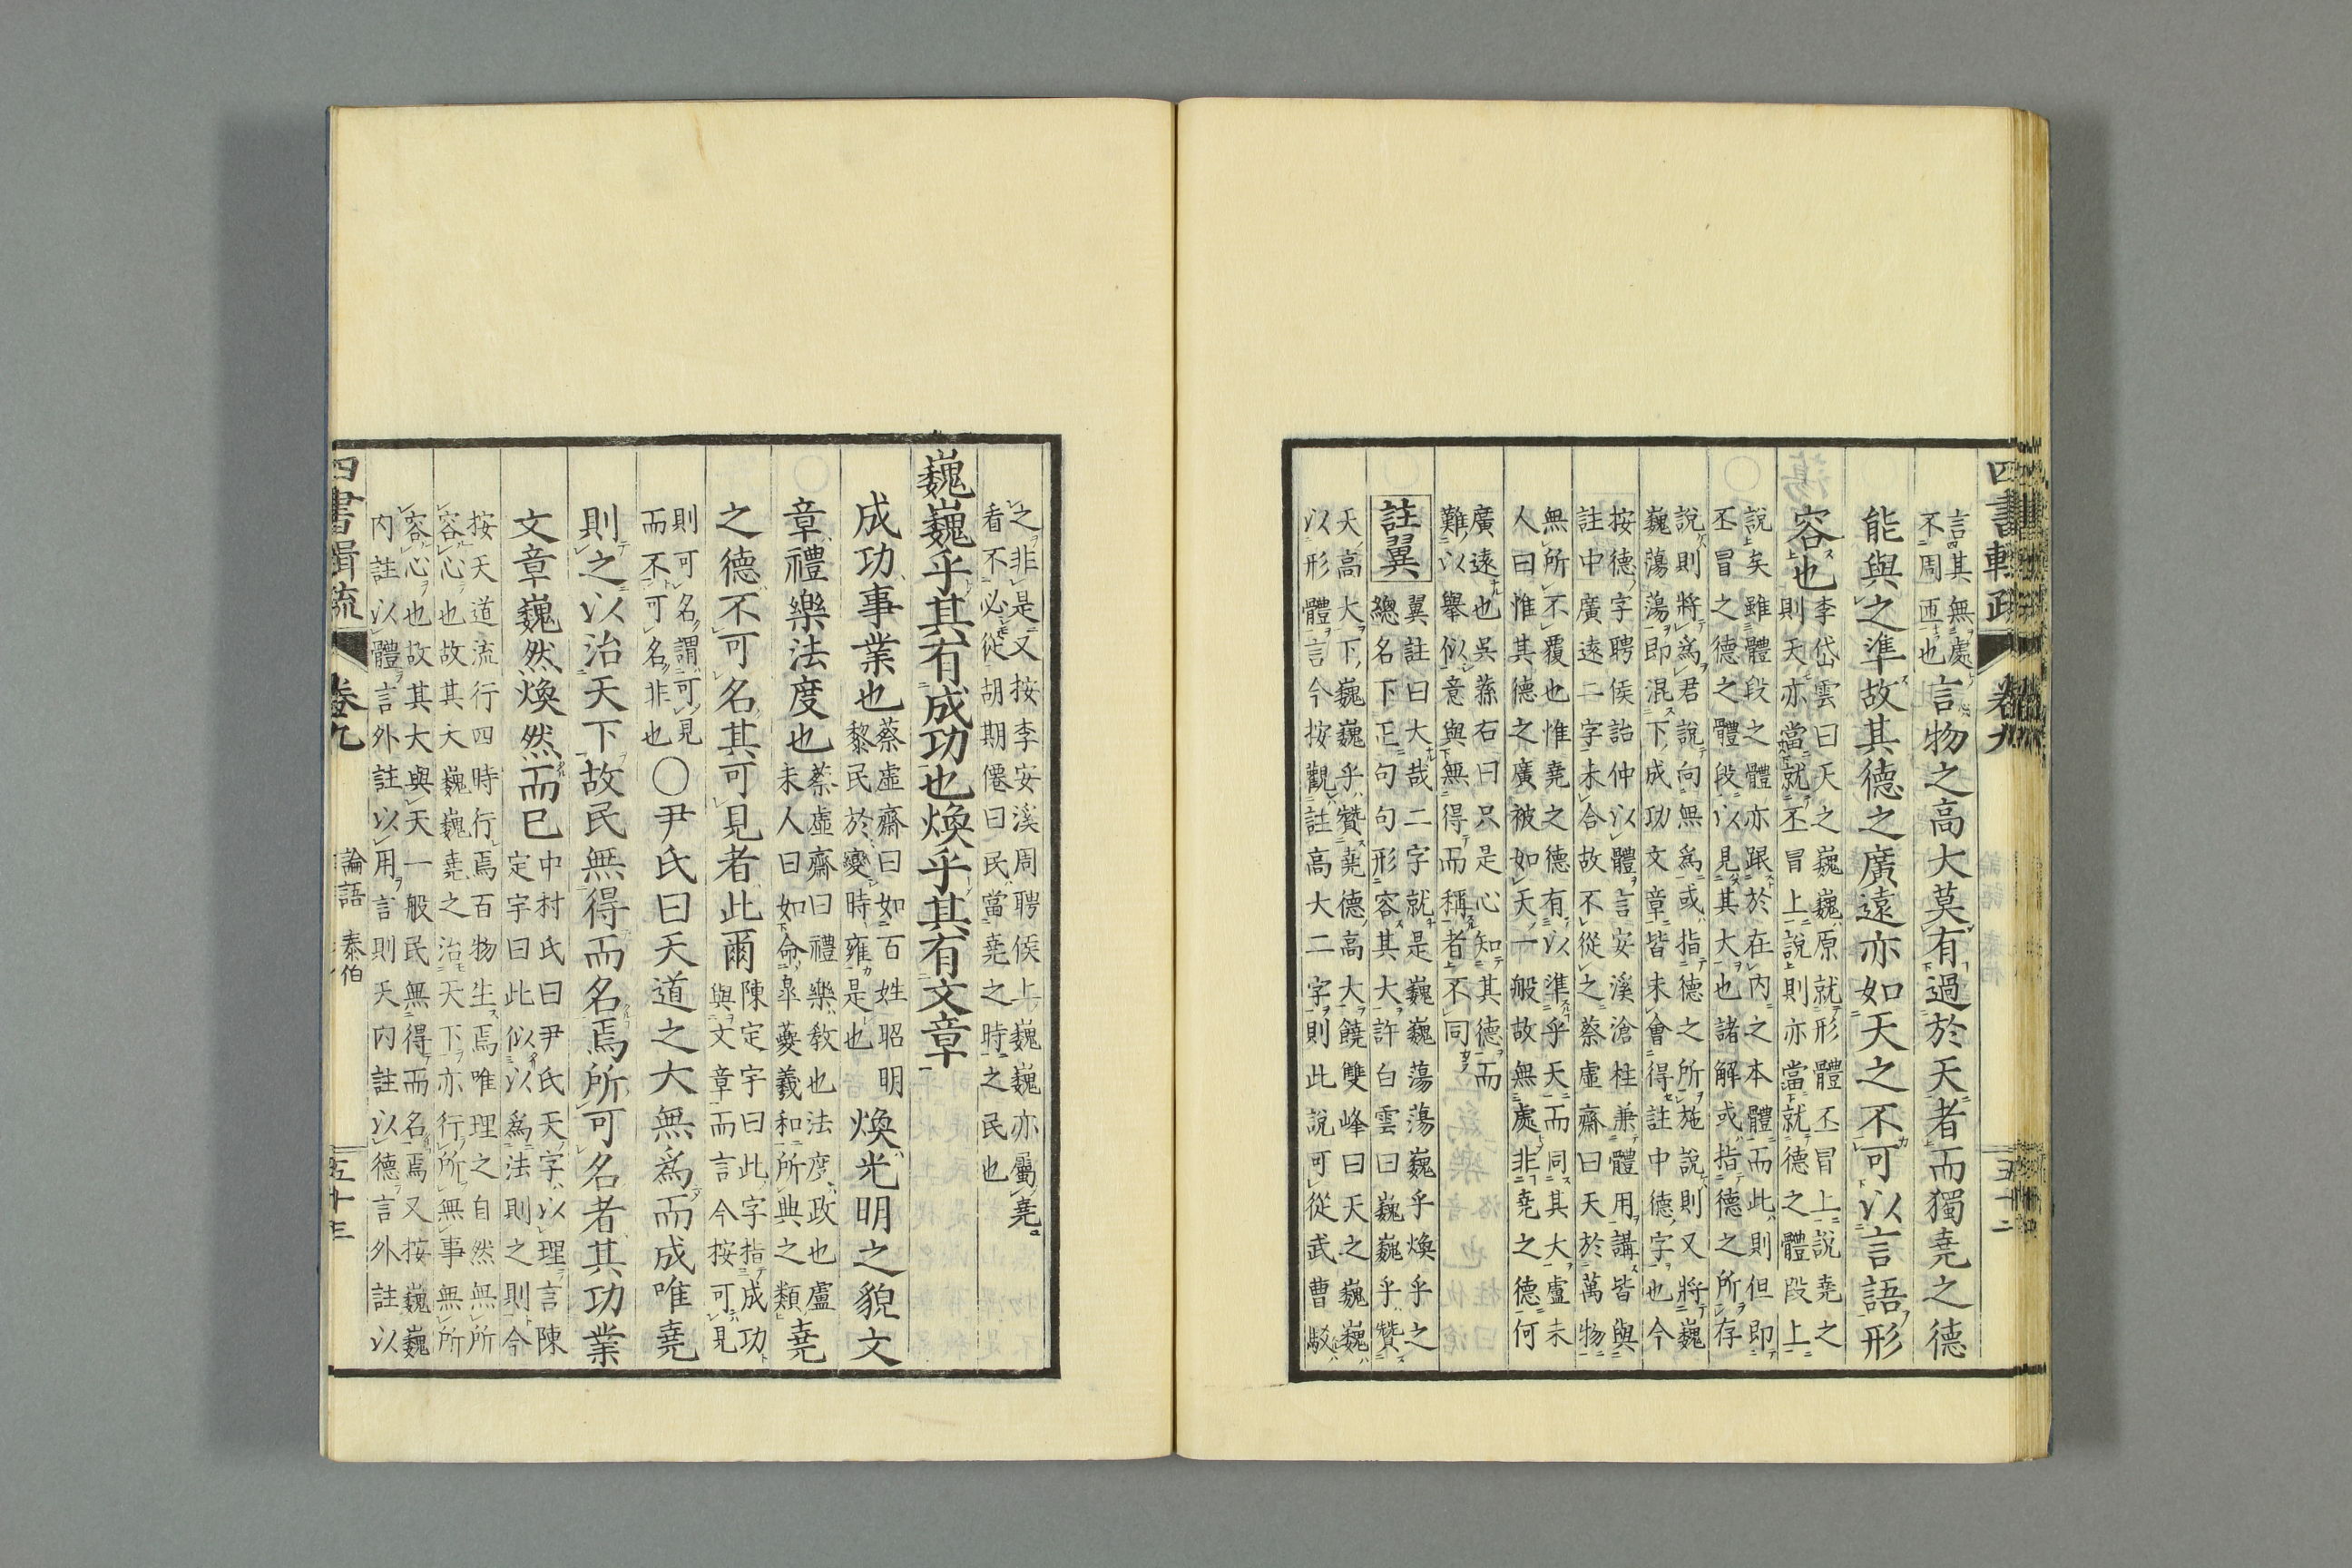 四書輯疏 卷九 五十二
言其無處不周匝也言物之高大莫有過於天者而獨堯之德
能與之準故其德之廣遠亦如天之不可以言語形
容也李岱雲曰天之巍巍原就形體丕冒上說堯之則天亦當就丕冒上說則亦當就德之體段上
說矣雖體段之體亦跟於在內之本體而此則但即丕冒之德之體段以見其大也諸解或指德之所存
說則將爲君說向無爲或指德之所施說則又將巍巍蕩蕩即混下成功文章皆未會得註中德字也今
按德字聘侯詒仲以體言安溪滄柱兼體用講皆與註中廣遠二字未合故不從之蔡虛齋曰天於萬物
無所不覆也惟堯之德有以準乎天而同其大盧未人曰惟其德之廣被如天一般故無處非堯之德何
廣遠也吳蓀右曰只是心知其德而難以舉似意與無得而稱者不同
註翼翼註曰大哉二字就是巍巍蕩蕩巍乎煥乎之總名下正句句形容其大許白雲曰巍巍乎贊
天高大下巍巍乎贊堯德高大饒雙峰曰天之巍巍以形體言今按觀註高大二字則此說可從武曹駁
之非是又按李安溪周聘侯上巍巍亦屬堯看不必從胡期僊曰民當堯之時之民也
巍巍乎其有成功也煥乎其有文章
成功事業也蔡虛齋曰如百姓昭明黎民於變時雍是也煥光明之貌文
章禮樂法度也蔡虛齋曰禮樂敎也法度政也盧未人曰如命皐夔羲和所典之類堯
之德不可名其可見者此爾陳定宇曰此字指成功與文章而言今按可見
則可名謂可見而不可名非也〇尹氏曰天道之大無爲而成唯堯
則之以治天下故民無得而名焉所可名者其功業
文章巍然煥然而已中村氏曰尹氏天字以理言陳定宇曰此似以爲法則之則今
按天道流行四時行焉百物生焉唯理之自然無所容心也故其大巍巍堯之治天下亦行所無事無所
容心也故其大與天一般民無得而名焉又按巍巍內註以體言外註以用言則天內註以德言外註以
四書輯疏 卷九 論語 泰伯 五十三